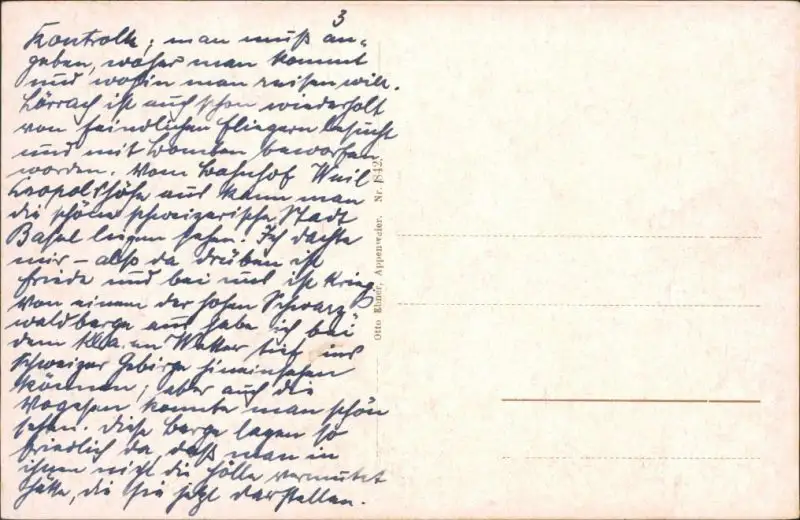 3
Kontrolle; man muß an-
geben, woher man kommt
und wohin man reisen will.
Lörrach ist auch schon wiederholt
von feindlichen Fliegern besucht
und mit Bomben beworfen
worden. Vom Bahnhof Weil
Leopoldshöhe aus kann man
die schöne schweizerische Stadt
Basel liegen sehen. Ich dachte
mir – also da drüben ist
Friede und bei uns ist Krieg.
Von einem der hohen Schwarz-
waldberge aus habe ich bei
dem Wetter tief ins
Schweizer Gebirge hineinsehen
können; aber auch die
Vogesen konnte man schön
sehen. Diese Berge lagen so
friedlich da, daß man in
ihnen nicht die Hölle vermutet
hätte, die sie jetzt darstellen.
Otto Ebner, Appenweier. Nr. 8425